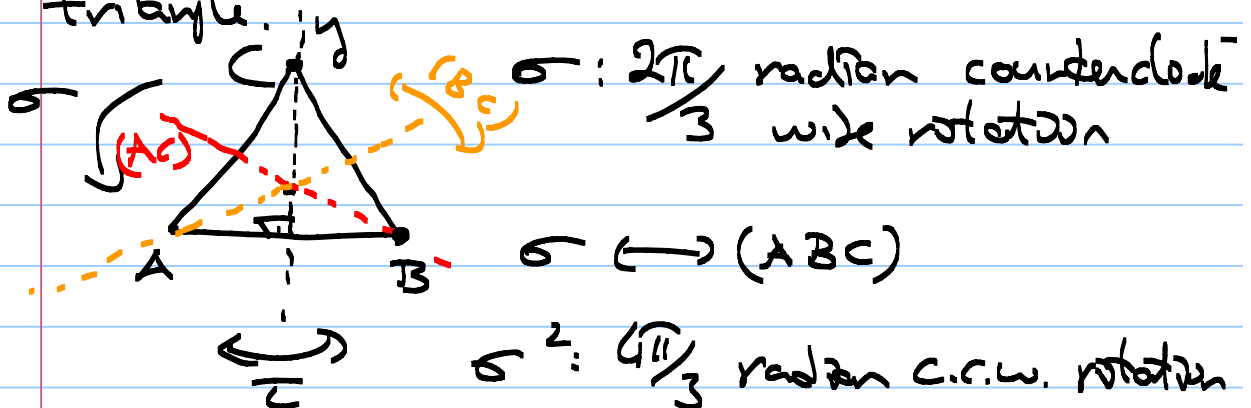 triangle.
y
C
σ
(AC)
(BC)
σ : 2π/3 radian counterclock-
wise rotation
A
B
σ ⟷ (A B C)
τ
σ²: 4π/3 radian c.c.w. rotation